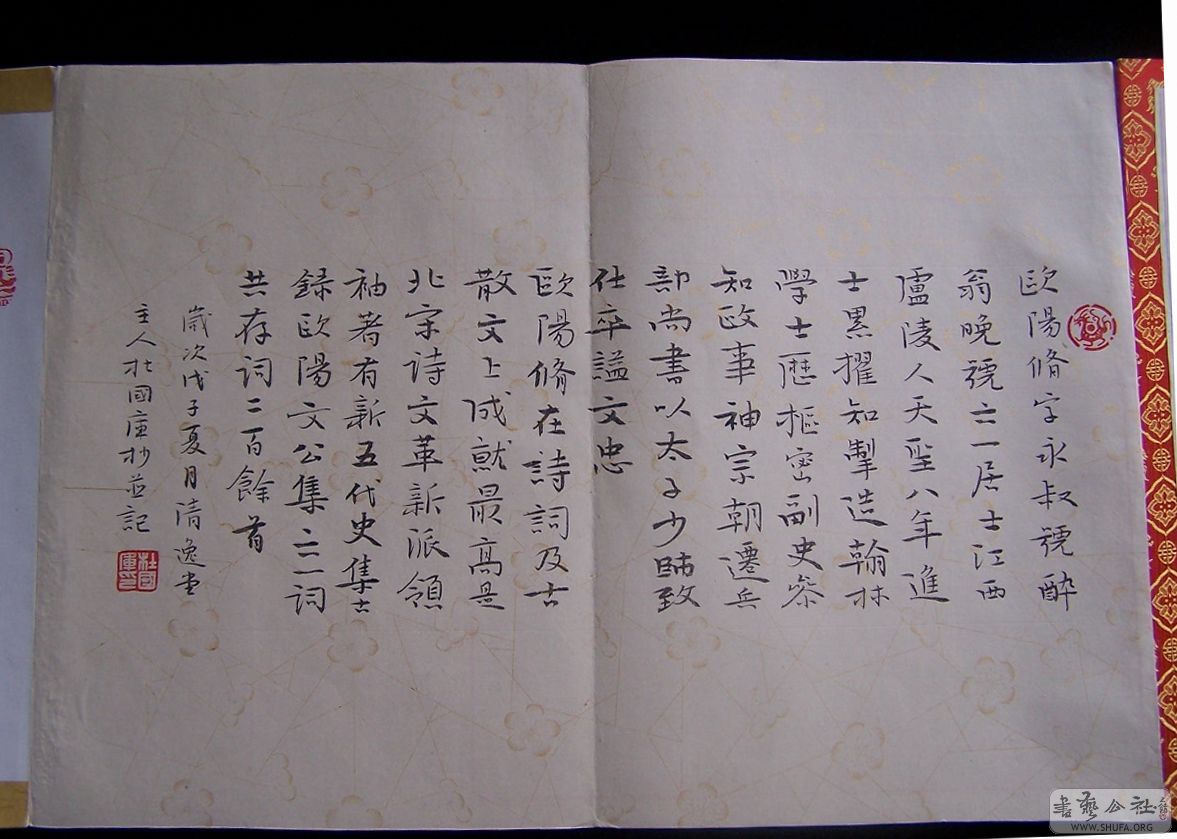 歐陽脩字永叔號醉
翁晚號六一居士江西
盧陵人天聖八年進
士累擢知掣造翰林
學士歷樞密副史叅
知政事神宗朝遷兵
部尚書以太子少師致
仕卒謚文忠
歐陽脩在詩詞及古
散文上成就最高是
北宋詩文革新派領
袖著有新五代史集古
録歐陽文公集六一詞
共存词二百餘首
歲次戊子夏月清逸堂
主人杜國庫抄並記
杜國庫印
書藝公社
WWW.SHUFA.ORG